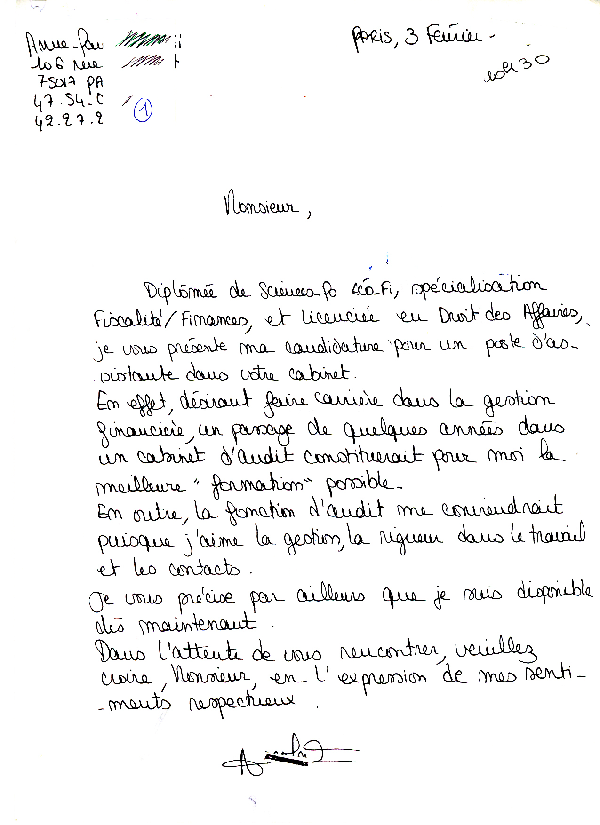 Anne-
PARIS, 3 Février -
106 rue
75017 PA
47.54.C
42.27.2
1
Monsieur,
Diplômée de Sciences-Po éco-Fi, spécialisation
Fiscalité/Finances, et licenciée en Droit des Affaires,
je vous présente ma candidature pour un poste d'as-
-sistante dans votre cabinet.
En effet, désirant faire carrière dans la gestion
financière, un passage de quelques années dans
un cabinet d'audit constituerait pour moi la
meilleure "formation" possible.
En outre, la fonction d'audit me conviendrait
puisque j'aime la gestion, la rigueur dans le travail
et les contacts.
Je vous précise par ailleurs que je suis disponible
dès maintenant.
Dans l'attente de vous rencontrer, veuillez
croire, Monsieur, en l'expression de mes senti-
-ments respectueux.